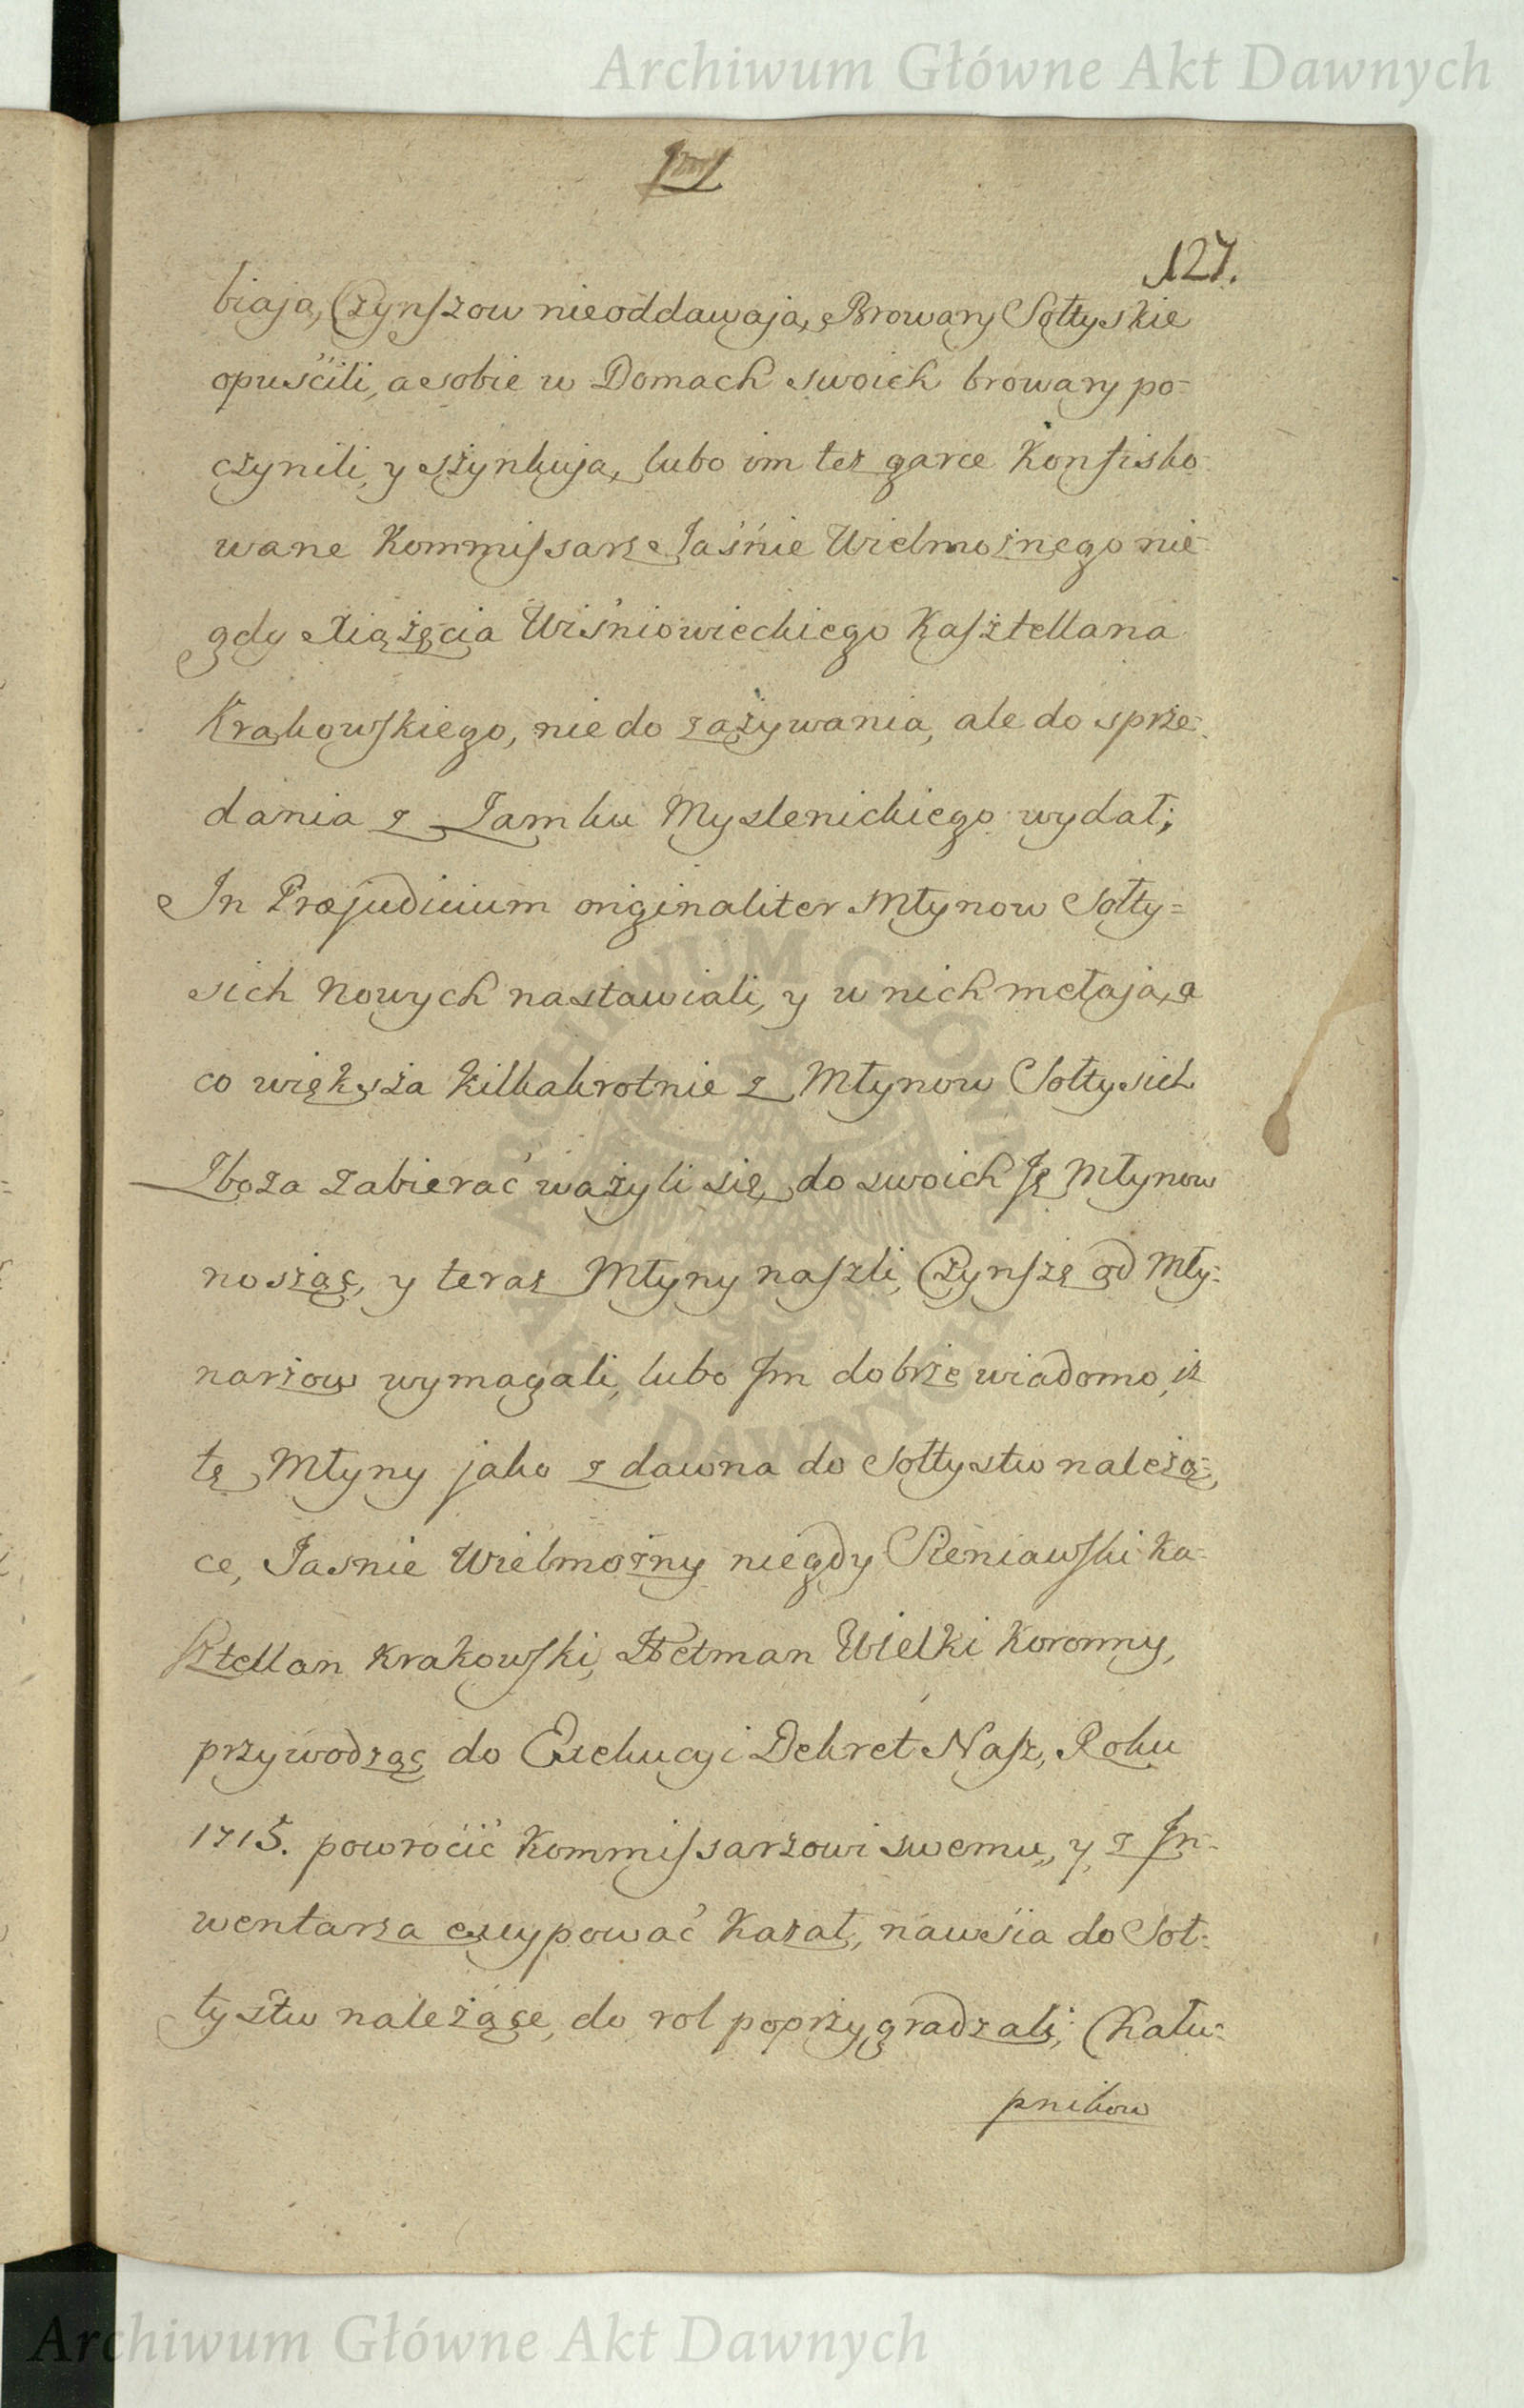 Archiwum Główne Akt Dawnych
127.
biają, Czynszow nieoddawaią, Browary Sołtyskie
opuścili, a sobie w Domach swoich browary po-
czynili, y szynkują, lubo im też garce Konfisko-
wane Kommissarz Jaśnie Wielmożnego nie-
gdy Xiążęcia Wiśniowieckiego Kasztellana
Krakowskiego, nie do zażywania, ale do sprze-
dania z Zamku Myslenickiego wydał;
In Præjudicium originaliter Młynow Sołty=
sich Nowych nastawiali, y w nich mełają, a
co większa kilkakrotnie z Młynow Sołtysich
Zboża zabierać ważyli się, do swoich Ję Młynow
nosząc, y teraz Młyny naszli, Czynszę od Mły-
narzow wymagali, lubo Im dobrze wiadomo, iż
tę Młyny jako z dawna do Sołtystw należą-
ce, Jasnie Wielmożny niegdy Sieniawski Ka-
sztellan Krakowski, Hetman Wielki Koronny,
przywodząc do Exekucyi Dekret Nasz, Roku
1715. powrócić Kommissarzowi swemu, y z In-
wentarza excypować Kazał, nawsia do Soł-
tystw należące, do rol poprzygradzali; Chału-
pnikow
ARCHIWUM GŁÓWNE AKT DAWNYCH
Archiwum Główne Akt Dawnych